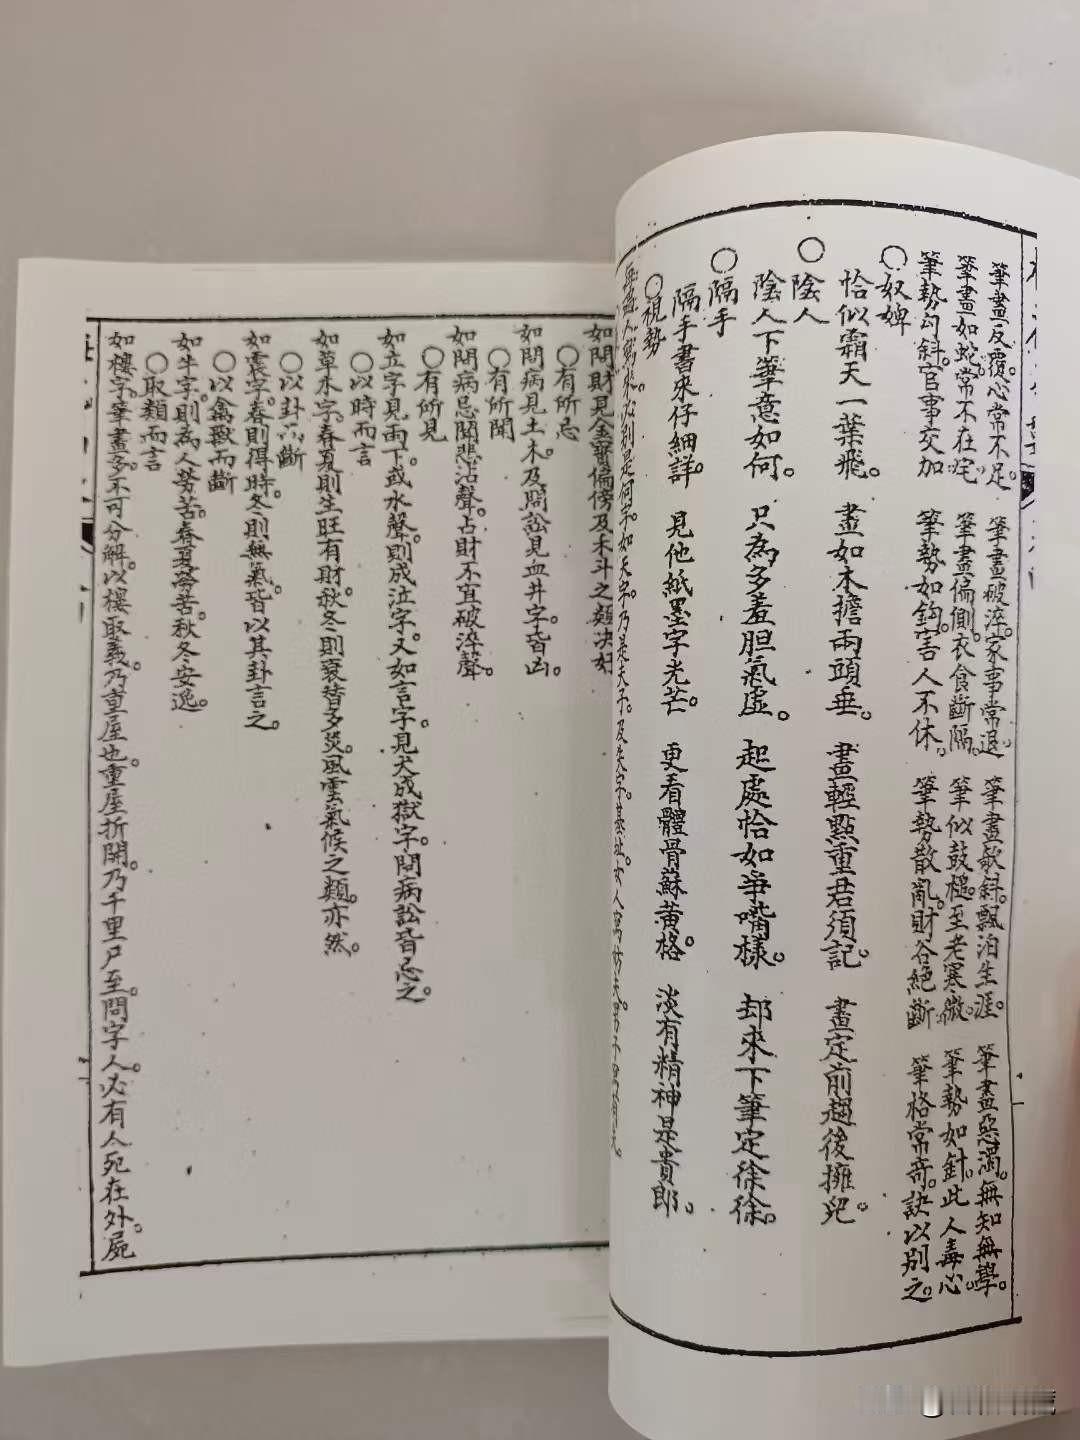 筆畫反覆。心常不足。 筆畫破淬。家事常退。 筆畫欹斜。飄泊生涯。 筆畫惡濁。無知無學。
筆畫如蛇。常不在宅。 筆畫偏側。衣食斷隔。 筆似鼓槌。至老寒微。 筆勢如針。此人毒心。
筆勢勾斜。官事交加 筆勢如鈎。害人不休。 筆勢散亂。財谷絕斷 筆格常奇。訣以別之。
○奴婢
恰似霜天一葉飛。 畫如木擔兩頭垂。 畫輕點重君須記。 畫定前趨後擁兒
○陰人
陰人下筆意如何。 只為多羞胆氣虛。 起處恰如爭嘴樣。 却來下筆定徐徐。
○隔手
隔手書來仔細詳。 見他紙墨字光芒。 更看體骨蘇黃格。 淡有精神是貴郎。
○視勢
人寫來必別是何字。如天字乃是夫子。及失字基址。女人寫妨夫。
如問財見金寶偏傍及禾斗之類決好
○有所忌
如問病見土木。及問訟見血井字。皆凶。
○有所聞
如問病忌聞悲沾聲。占財不宜破淬聲。
○有所見
如立字見雨下。或水聲。則成泣字。又如言字。見犬成獄字。問病訟皆忌之。
○以時而言
如草木字。春夏則生旺有財。秋冬則衰替多災。風雲氣候之類。亦然。
○以卦而斷
如震字。春則得時。冬則無氣。皆以其卦言之。
○以禽獸而斷
如牛字。則為人勞苦。春夏勞苦。秋冬安逸。
○取類而言
如樓字。筆畫多。不可分解。以樓取義。乃重屋也。重屋折開。乃千里尸至。問字人。必有人死在外。屍